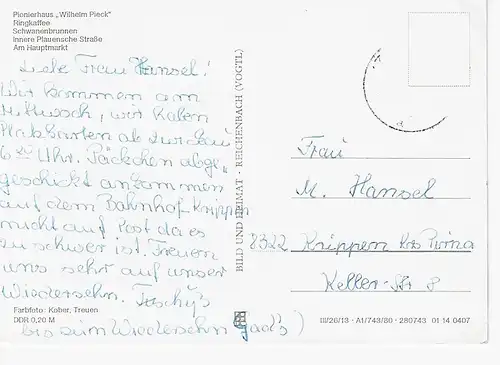 Pionierhaus „Wilhelm Pieck"
Ringkaffee
Schwanenbrunnen
Innere Plauensche Straße
Am Hauptmarkt
Liebe Frau Hansel!
Wir kommen am
Mittwoch, wir haben
Platzkarten ab
6 Uhr. Päckchen abge-
geschickt ankommen
auf dem Bahnhof Krippen
nicht auf Post da es
zu schwer ist. Freuen
uns sehr auf unser
Wiedersehn.
bis zum Wiedersehn
Farbfoto: Kober, Treuen
DDR 0,20 M
BILD UND HEIMAT · REICHENBACH (VOGTL)
Frau
M. Hansel
8322 Krippen Krs Pirna
Keller-Str 8
III/26/13 · A1/743/80 · 280743 01 14 0407